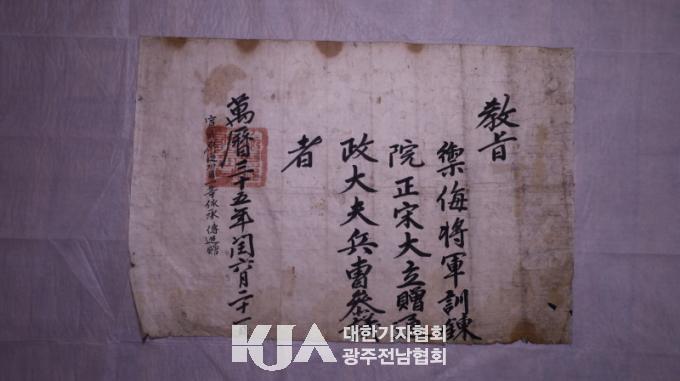 教旨
禦侮將軍訓鍊
院正宋大立贈通
政大夫兵曹參議
者
萬曆三十五年閏六月二十
KJA 대한기자협회
광주전남협회